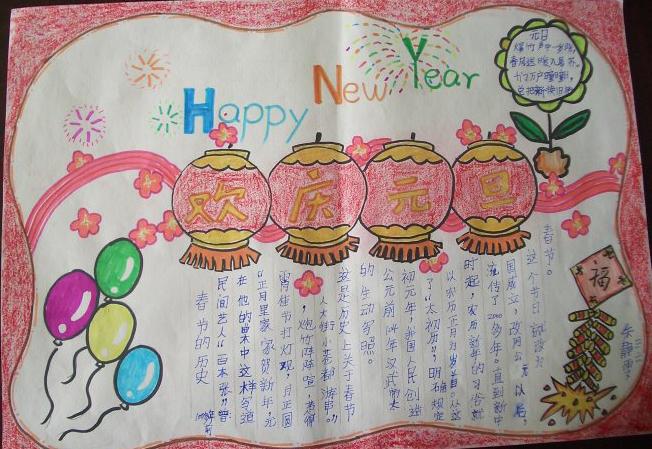 Happy New Year
元日
爆竹声中一岁除
春风送暖入屠苏。
千门万户曈曈日，
总把新桃换旧符
欢庆元旦
福
春节的历史
民间艺人“百本张”曾
在他的曲本中这样写道
“正月里家家贺新年，元
宵佳节打灯观，月正圆
，炮竹阵阵喧，惹得
人大街小花都游串。”
这是历史上关于春节
的生动写照。
公元前104年汉武帝太
初元年，我国人民创造
了“太初历”，明确规定
以农历正月为岁首。从这
时起，农历新年的习俗就
流传了2000多年。直到新中
国成立，改用公元以后，
这个节日被改为
春节。